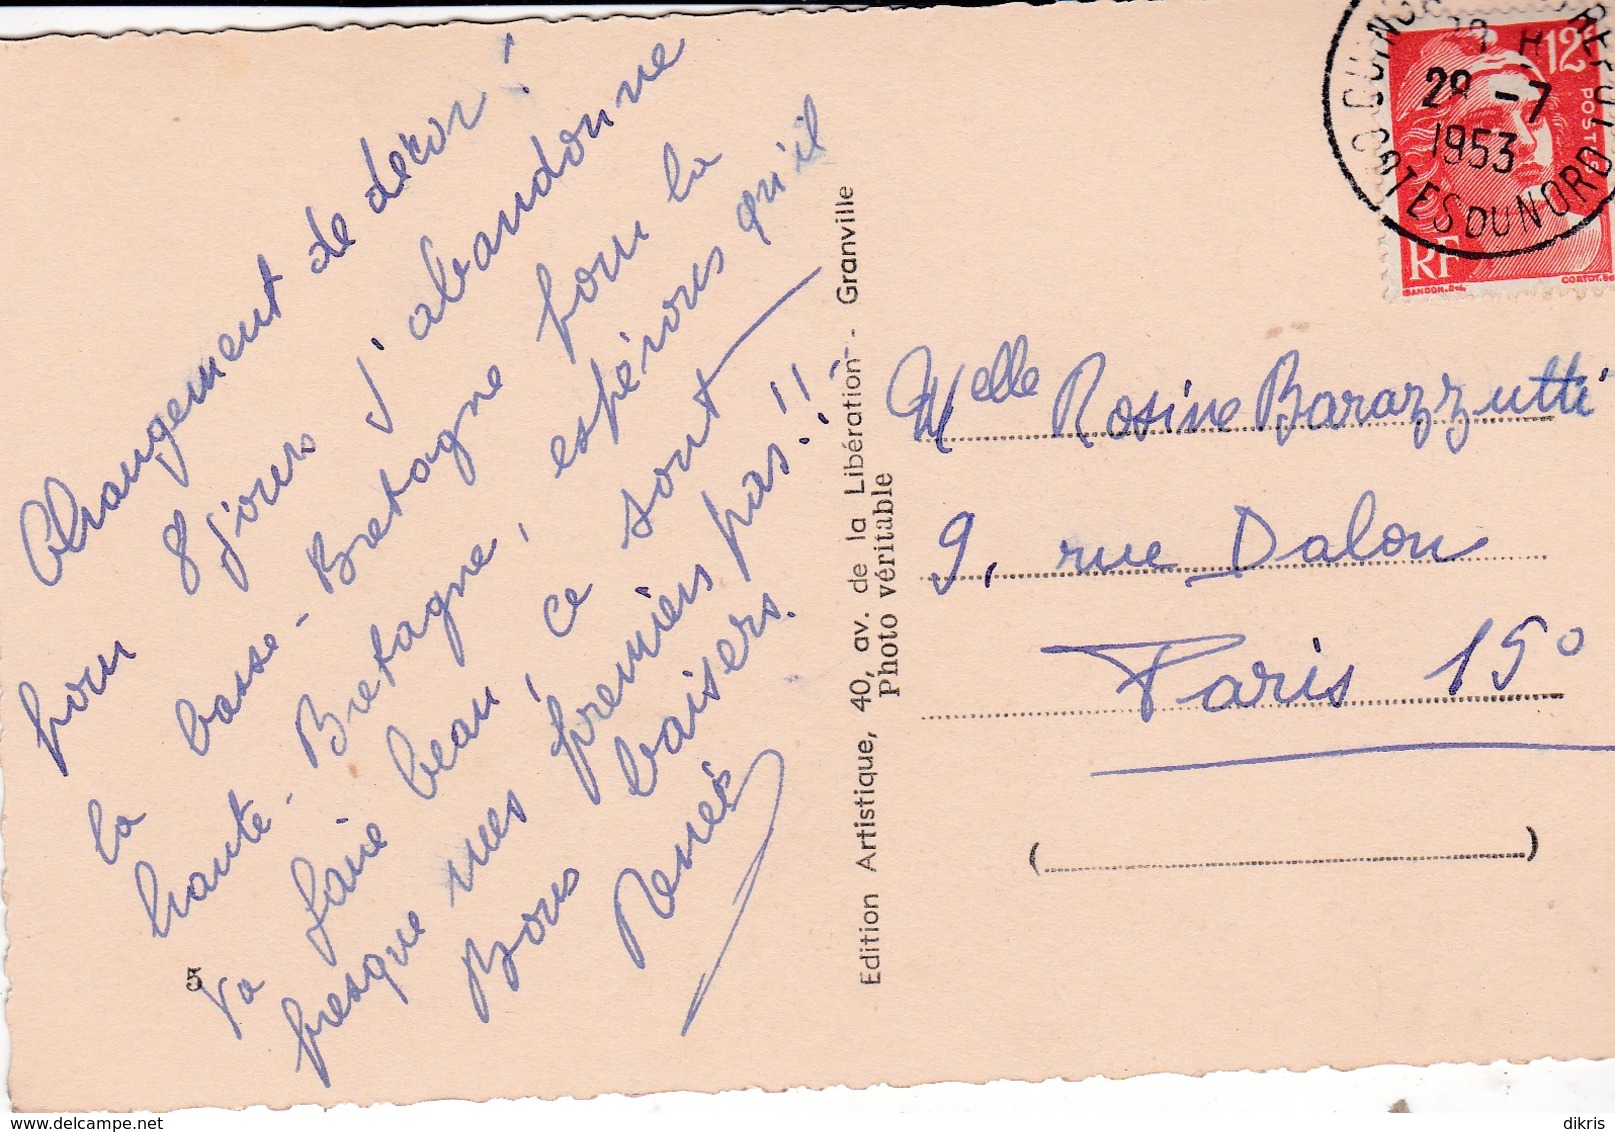 Changement de décor !
pour 8 jours j'abandonne
la basse-Bretagne pour la
haute-Bretagne, espérons qu'il
va faire beau, ce sont
presque mes premiers pas !!
Bons baisers.
Renée
5
Edition Artistique, 40, av. de la Libération - Granville
Photo véritable
12F
POSTES
28 -7
1953
COTES DU NORD
RF
GANDON. Del.
CORTOT. Sc.
Melle Rosine Barazzutti
9, rue Dalou
Paris 15°
(
)
delcampe.net
dikris